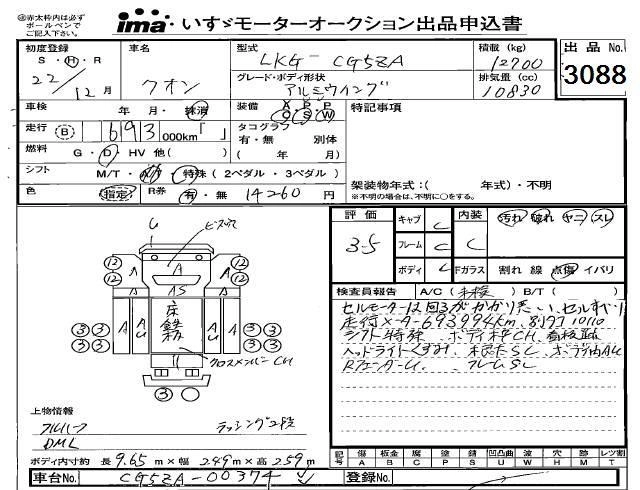 ㊟赤太枠内は必ず
ボールペンで
ご記入下さい。
ima いすゞモーターオークション出品申込書
初度登録 車名 型式 積載(kg) 出品No.
S・H・R クオン LKG-CG5ZA 12700 3088
22/12月 グレード・ボディ形状 排気量(cc)
アルミウイング 10830
車検 年 月・抹消 装備 A R P 特記事項
走行 (B) 693 000km「 」 タコグラフ
有・無 別体
燃料 G・D・HV 他( ) ( 年 月)
シフト M/T・A/T・特殊(2ペダル・3ペダル) 架装物年式:( 年式)・不明
色 (指定) R券 有・無 14260 円 ※不明の場合は、不明に○をする。
評価 キャブ C 内装 汚れ 破れ ヤニ スレ
3-5 フレーム C C
ボディ Fガラス 割れ 線 点傷 イバリ
検査員報告 A/C(未検) B/T( )
セルモーターは回るがかかりにくい、セルすべり
走行メーター693994km、
シフト特殊、ボディ枠CH、
ヘッドライトくすみ、SL、ボデ内AU
Rフェンダーし、フレームSC
U
12 A A A 12
12 AS 12
3 3 A AU 床鉄板 A A 3 3
3 3 3 3
クロスメンバーCH
3
上物情報
フルハーフ ラッシング2段
DML
記号 傷 板金 腐 塗 錆 凹凸曲 波 穴 跡 レツ割
A B C P S U W H M T
ボディ内寸約 長 9.65 m×幅 2.49 m×高 2.59 m
車台No. CG5ZA-00374 登録No.